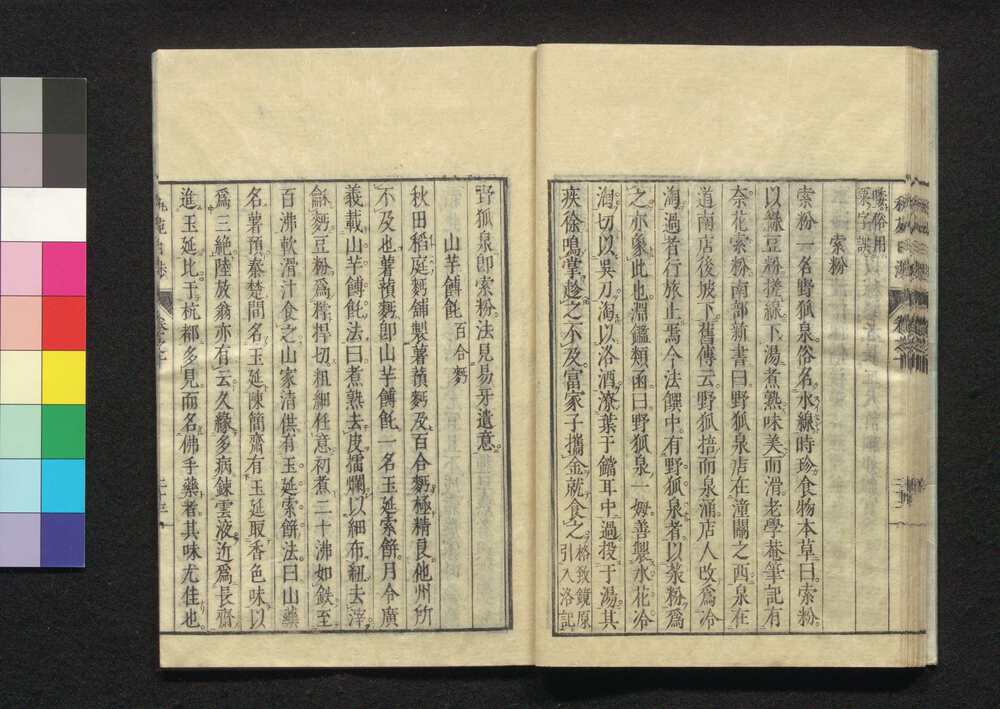 嗉俗用
粟字誤
索粉
索粉一名野狐泉俗名水線時珍食物本草曰索粉
以綠豆粉搓線下湯煮熟味美而滑老學菴筆記有
奈花索粉南部新書曰野狐泉店在潼關之西泉在
道南店後坡下舊傳云野狐掊而泉涌店人改爲冷
淘過者行旅止焉今法饌中有野狐泉者以菉粉爲
之亦象此也淵鑑類函曰野狐泉一姆善製水花冷
淘切以吳刀淘以洛酒潦葉于鐺耳中過投于湯其
疾徐鳴掌趁之不及富家子攜金就食之
格致鏡原
引入洛記
野狐泉卽索粉法見易牙遺意
山芋餺飥 百合麪
秋田稻庭麪舗製薯蕷麪及百合麪極精良他州所
不及也薯蕷麪卽山芋餺飥一名玉延索餠月令廣
義載山芋餺飥法曰煮熟去皮擂爛以細布紐去滓
龢麪豆粉爲𥻦捍切粗細任意初煮二十沸如鉄至
百沸軟滑汁食之山家清供有玉延索餠法曰山藥
名薯預秦楚間名玉延陳簡齋有玉延取香色味以
爲三絶陸放翁亦有云久緣多病錬雲液近爲長齋
進玉延比于杭都多見而名佛手藥者其味尤佳也